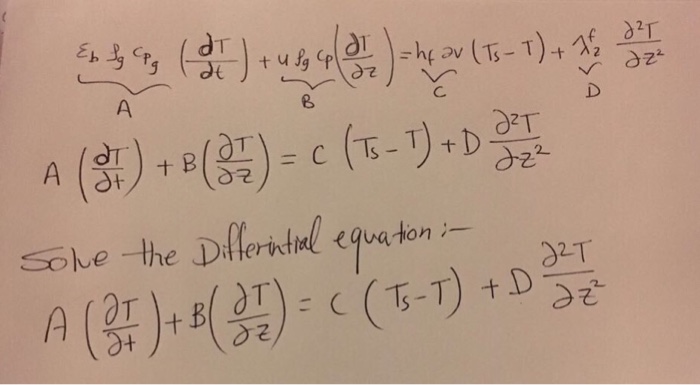 ε_b ρ_g C_pg (∂T/∂t) + u ρ_g C_p (∂T/∂z) = h_f av (Ts - T) + λ_z^f ∂²T/∂z²
A B C D
A (∂T/∂t) + B (∂T/∂z) = C (Ts - T) + D ∂²T/∂z²
Solve the Differintial equation :-
A (∂T/∂t) + B (∂T/∂z) = C (Ts - T) + D ∂²T/∂z²